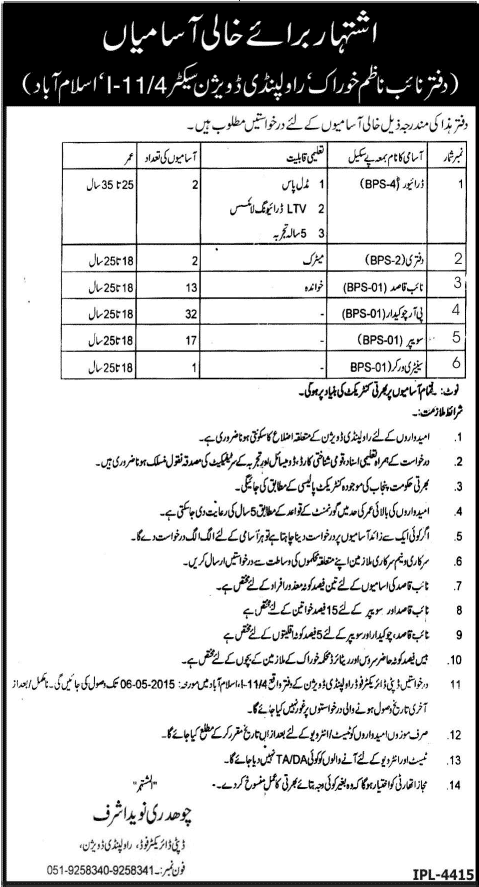 اشتہار برائے خالی آسامیاں
(دفتر نائب ناظم خوراک، راولپنڈی ڈویژن سیکٹر I-11/4، اسلام آباد)
دفتر ہذا کی مندرجہ ذیل خالی آسامیوں کے لئے درخواستیں مطلوب ہیں۔
نمبر شمار آسامی کا نام بمعہ پے سکیل تعلیمی قابلیت آسامیوں کی تعداد عمر
1 ڈرائیور (BPS-4) 1 مڈل پاس 2 25 تا 35 سال
2 LTV ڈرائیونگ لائسنس
3 5 سالہ تجربہ
2 دفتری (BPS-2) میٹرک 2 18 تا 25 سال
3 نائب قاصد (BPS-01) خواندہ 13 18 تا 25 سال
4 پی آر چوکیدار (BPS-01) - 32 18 تا 25 سال
5 سویپر (BPS-01) - 17 18 تا 25 سال
6 سینٹری ورکر (BPS-01 - 1 18 تا 25 سال
نوٹ:۔ تمام آسامیوں پر بھرتی کنٹریکٹ کی بنیاد پر ہوگی۔
شرائط ملازمت:۔
1. امیدواروں کے لئے راولپنڈی ڈویژن کے متعلقہ اضلاع کا سکونتی ہونا ضروری ہے۔
2. درخواست کے ہمراہ تعلیمی اسناد، قومی شناختی کارڈ، ڈومیسائل اور تجربہ کے سرٹیفکیٹ کی مصدقہ نقول منسلک ہونا ضروری ہیں۔
3. بھرتی حکومت پنجاب کی موجودہ کنٹریکٹ پالیسی کے مطابق کی جائیگی۔
4. امیدواروں کی بالائی عمر کی حد میں گورنمنٹ کے قواعد کے مطابق 5 سال کی رعایت دی جا سکتی ہے۔
5. اگر کوئی ایک سے زائد آسامیوں پر درخواست دینا چاہتا ہے تو ہر آسامی کے لئے الگ الگ درخواست دے گا۔
6. سرکاری و نیم سرکاری ملازمین اپنے متعلقہ محکموں کی وساطت سے درخواستیں ارسال کریں۔
7. نائب قاصد کی آسامیوں کے لئے تین فیصد کوٹہ معذور افراد کے لئے مختص ہے۔
8 نائب قاصد اور سویپر کے لئے 15 فیصد خواتین کے لئے مختص ہے
9 نائب قاصد، چوکیدار اور سویپر کے لئے 5 فیصد کوٹہ اقلیتوں کے لئے مختص ہے۔
10. بیس فیصد کوٹہ حاضر سروس اور ریٹائرڈ محکمہ خوراک کے ملازمین کے بچوں کے لئے مختص ہے۔
11 درخواستیں ڈپٹی ڈائریکٹر فوڈ راولپنڈی ڈویژن کے دفتر واقع I-11/4، اسلام آباد میں مورخہ: 06-05-2015 تک وصول کی جائیں گی۔ نامکمل/بعد از
آخری تاریخ وصول ہونے والی درخواستوں پر غور نہیں کیا جائے گا۔
12. صرف موزوں امیدواروں کو ٹیسٹ/انٹرویو کے لئے بعد ازاں تاریخ مقرر کر کے مطلع کیا جائے گا۔
13. ٹیسٹ اور انٹرویو کے لئے آنے والوں کو کوئی TA/DA نہیں دیا جائے گا۔
14. مجاز اتھارٹی کو اختیار ہوگا کہ وہ بغیر کوئی وجہ بتائے بھرتی کا عمل منسوخ کر دے۔
"المشتہر"
چوہدری نوید اشرف
ڈپٹی ڈائریکٹر فوڈ، راولپنڈی ڈویژن،
فون نمبر: 051-9258340-9258341
IPL-4415